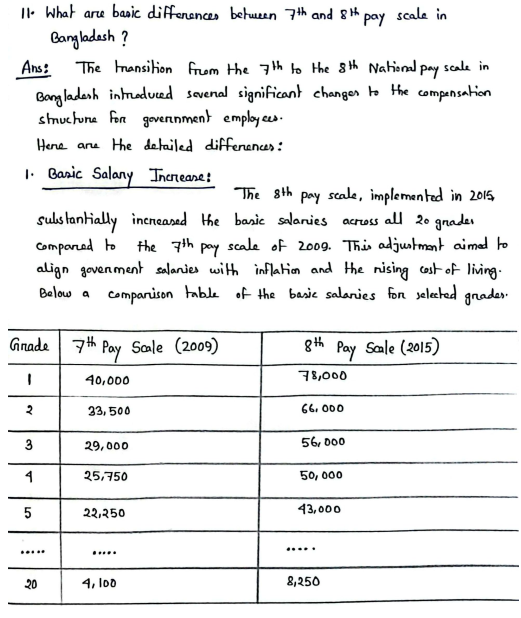 11. What are basic differences between 7th and 8th pay scale in
Bangladesh ?
Ans: The transition from the 7th to the 8th National pay scale in
Bangladesh introduced several significant changes to the compensation
structure for government employees.
Here are the detailed differences:
1. Basic Salary Increase:
The 8th pay scale, implemented in 2015,
substantially increased the basic salaries across all 20 grades
compared to the 7th pay scale of 2009. This adjustment aimed to
align government salaries with inflation and the rising cost of living.
Below a comparison table of the basic salaries for selected grades.
Grade 7th Pay Scale (2009) 8th Pay Scale (2015)
1 40,000 78,000
2 33,500 66,000
3 29,000 56,000
4 25,750 50,000
5 22,250 43,000
..... ..... .....
20 4,100 8,250